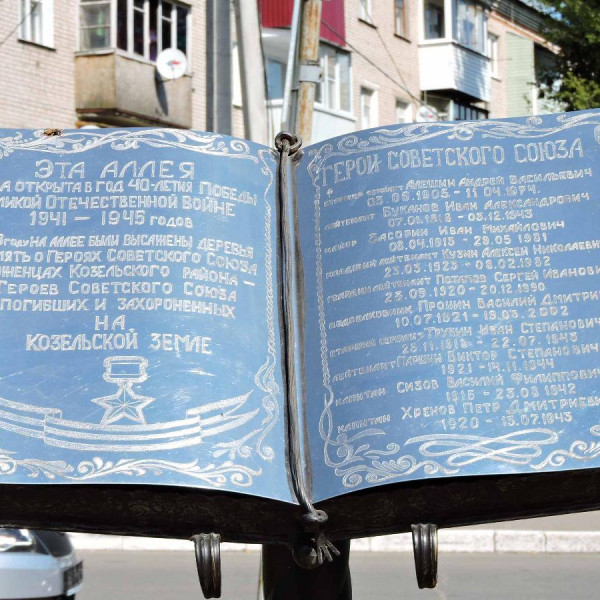 ЭТА АЛЛЕЯ
ОТКРЫТА В ГОД 40-ЛЕТИЯ ПОБЕДЫ
ЛИКОЙ ОТЕЧЕСТВЕННОЙ ВОЙНЕ
1941 — 1945 ГОДОВ
НА АЛЛЕЕ БЫЛИ ВЫСАЖЕНЫ ДЕРЕВЬЯ
МЯТЬ О ГЕРОЯХ СОВЕТСКОГО СОЮЗА
ОЖЕНЦАХ КОЗЕЛЬСКОГО РАЙОНА —
ГЕРОЕВ СОВЕТСКОГО СОЮЗА
ПОГИБШИХ И ЗАХОРОНЕННЫХ
НА
КОЗЕЛЬСКОЙ ЗЕМЛЕ
ГЕРОИ СОВЕТСКОГО СОЮЗА
АЛЕШИН АНДРЕЙ ВАСИЛЬЕВИЧ
03.06.1905 - 11.04.1974.
ЛЕЙТЕНАНТ БУКАНОВ ИВАН АЛЕКСАНДРОВИЧ
МАЙОР ЗАСОРИН ИВАН МИХАЙЛОВИЧ
08.04.1915 - 29.05.1981
МЛАДШИЙ ЛЕЙТЕНАНТ КУЗИН АЛЕКСЕЙ НИКОЛАЕВИЧ
23.03.1923 - 08.02.1982
ПОТАПОВ СЕРГЕЙ ИВАНОВИ
23.09.1920 - 20.12.1990
ПОДПОЛКОВНИК ПРОНИН ВАСИЛИЙ ДМИТРИ
10.07.1921 - 19.03.2002
СТАРШИЙ СЕРЖАНТ ТРУБИН ИВАН СТЕПАНОВИЧ
22.07.1943
ЛЕЙТЕНАНТ ПАРШИН ВИКТОР СТЕПАНОВИЧ
1921 - 14.11.1944
КАПИТАН СИЗОВ ВАСИЛИЙ ФИЛИППОВИЧ
1915 - 23.08.1942
КАПИТАН ХРЕНОВ ПЕТР ДМИТРИЕВИ
1920 - 13.07.1943